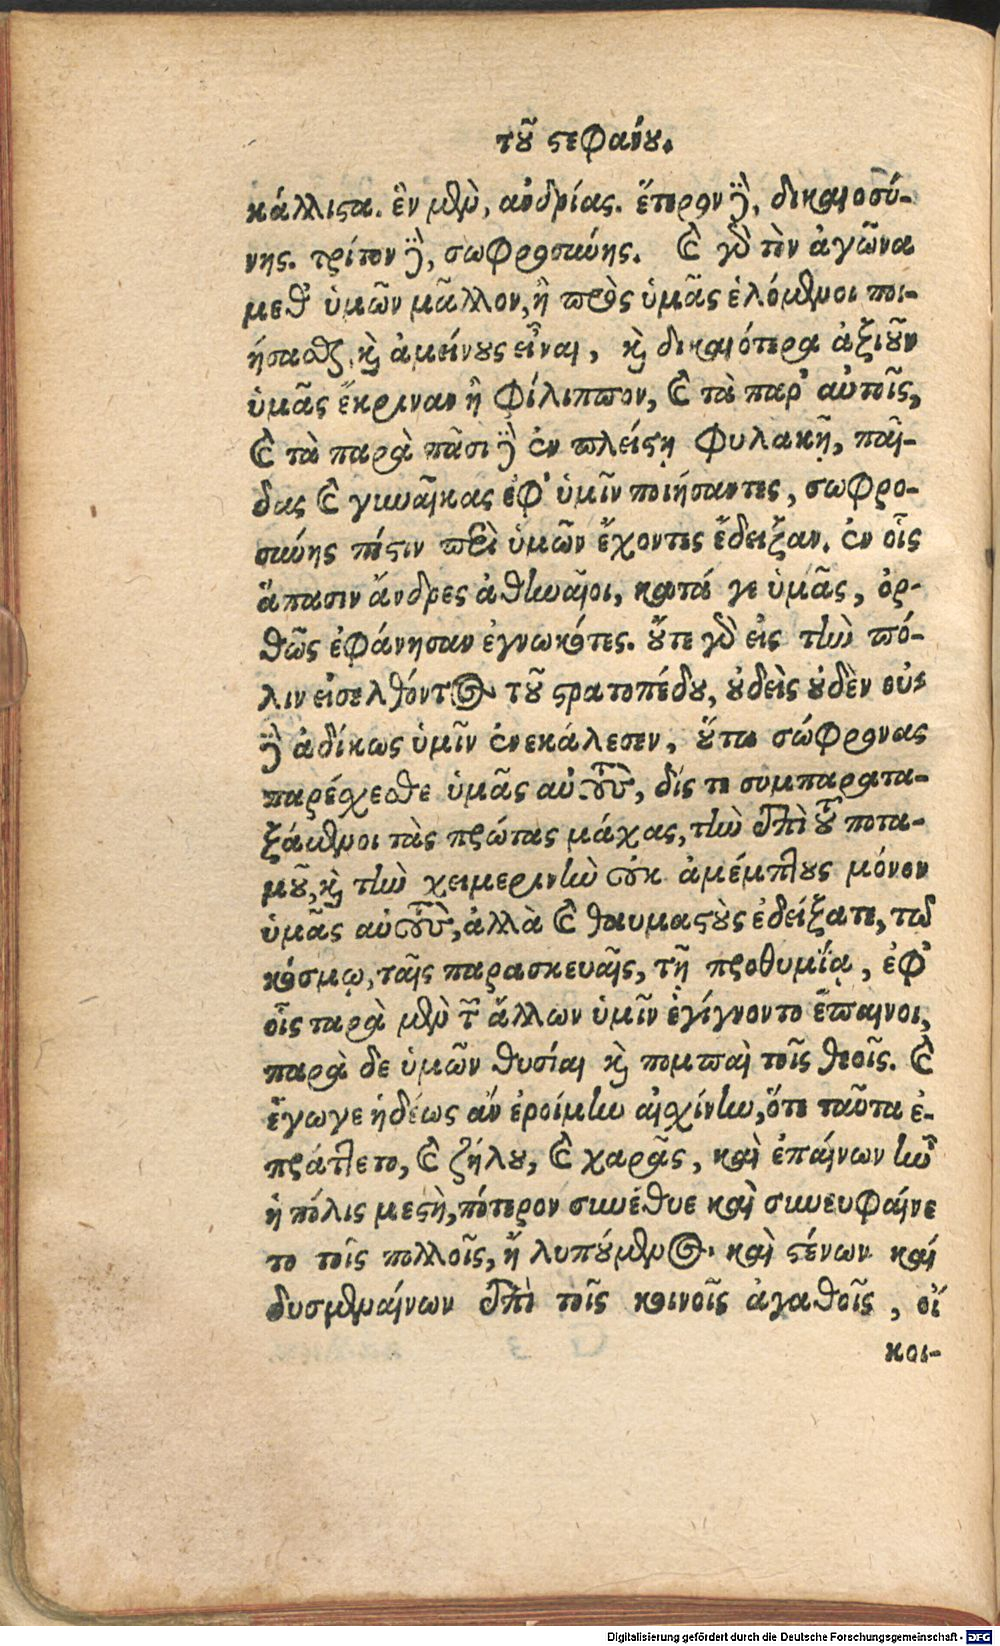 τοῦ στεφάνου.
κάλλιστα. ἓν μὲν, ἀνδρίας. ἕτερον δὲ, δικαιοσύ-
νης. τρίτον δὲ, σωφροσύνης. καὶ γὰρ τὸν ἀγῶνα
μεθ' ὑμῶν μᾶλλον, ἢ πρὸς ὑμᾶς ἑλόμενοι ποι-
ήσασθαι, καὶ ἀμείνους εἶναι, καὶ δικαιότερα ἀξιοῦν
ὑμᾶς ἔκριναν ἢ Φίλιππον, καὶ τὰ παρ' αὐτοῖς,
καὶ τὰ παρὰ πᾶσι δὲ ἐν πλείστῃ φυλακῇ, παῖ-
δας καὶ γυναῖκας ἐφ' ὑμῖν ποιήσαντες, σωφρο-
σύνης πίστιν περὶ ὑμῶν ἔχοντες ἔδειξαν. ἐν οἷς
ἅπασιν ἄνδρες ἀθηναῖοι, κατά γε ὑμᾶς, ὀρ-
θῶς ἐφάνησαν ἐγνωκότες. οὔτε γὰρ εἰς τὴν πό-
λιν εἰσελθόντος τοῦ στρατοπέδου, οὐδεὶς οὐδὲν οὐ-
δὲ ἀδίκως ὑμῖν ἐνεκάλεσεν, οὕτω σώφρονας
παρέχεσθε ὑμᾶς αὐτοὺς, δίς τε συμπαρατα-
ξάμενοι τὰς πρώτας μάχας, τὴν ἐπὶ τοῦ ποτα-
μοῦ, καὶ τὴν χειμερινὴν οὐκ ἀμέμπτους μόνον
ὑμᾶς αὐτοὺς, ἀλλὰ καὶ θαυμαστοὺς ἐδείξατε, τῷ
κόσμῳ, ταῖς παρασκευαῖς, τῇ προθυμίᾳ, ἐφ'
οἷς παρὰ μὲν τῶν ἄλλων ὑμῖν ἐγίγνοντο ἔπαινοι,
παρὰ δε ὑμῶν θυσίαι καὶ πομπαὶ τοῖς θεοῖς. καὶ
ἔγωγε ἡδέως ἂν ἐροίμην αἰσχίνην, ὅτε ταῦτα ἐ-
πράττετο, καὶ ζήλου, καὶ χαρᾶς, καὶ ἐπαίνων ἦν
ἡ πόλις μεστὴ, πότερον συνέθυε καὶ συνευφαίνε
το τοῖς πολλοῖς, ἢ λυπούμενος καὶ στένων καὶ
δυσμεναίνων ἐπὶ τοῖς κοινοῖς ἀγαθοῖς, οἴ
κοι-
Digitalisierung gefördert durch die Deutsche Forschungsgemeinschaft - DFG